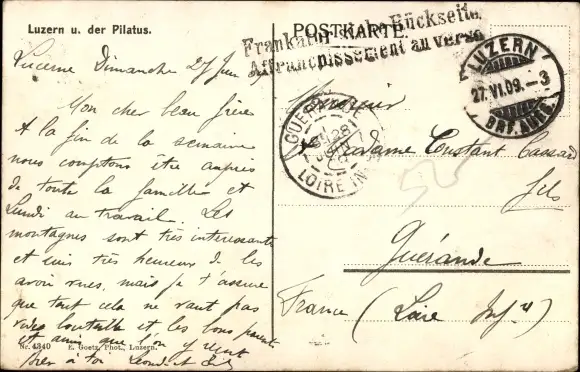 Luzern u. der Pilatus.
POSTKARTE.
Frankatur siehe Rückseite.
Affranchissement au verso
LUZERN
27.VI.09.-3
BRF. AUFG.
Lucerne Dimanche 27 Juin
Mon cher beau frère
A la fin de la semaine
nous comptons être auprès
de toute la famille et
Lundi au travail. Les
montagnes sont très interessantes
et suis très heureux de les
avoir vues, mais je t'assure
que tout cela ne vaut pas
bouteille et les bons parents
et amis que l'on y
à toi
GUERANDE
28
JUIN
LOIRE INF
Monsieur
Madame Constant Cassard
fils
Guérande
France (Loire Infre)
Nr. 4340 E. Goetz, Phot., Luzern.